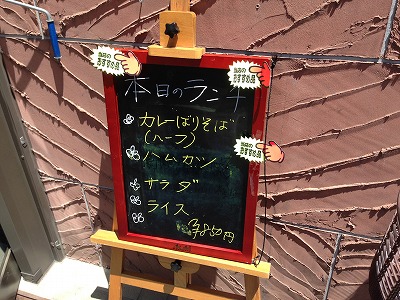 本日のランチ
カレーばりそば
(ハーフ)
ハムカツ
サラダ
ライス
¥850円